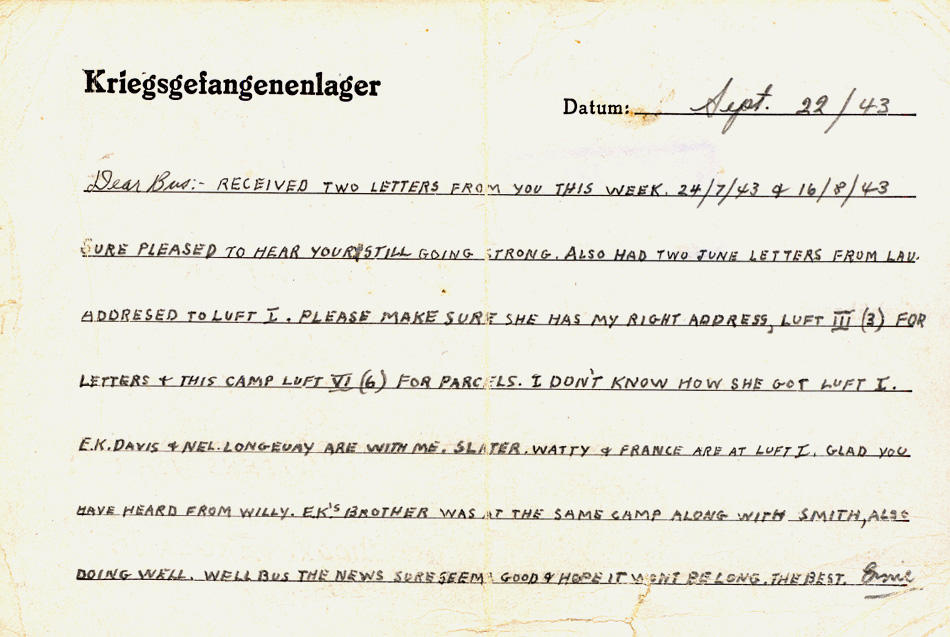 Kriegsgefangenenlager
Datum: Sept. 22/43
Dear Bus:- RECEIVED TWO LETTERS FROM YOU THIS WEEK. 24/7/43 & 16/8/43
SURE PLEASED TO HEAR YOUR STILL GOING STRONG. ALSO HAD TWO JUNE LETTERS FROM LAU.
ADDRESED TO LUFT I. PLEASE MAKE SURE SHE HAS MY RIGHT ADDRESS, LUFT III (3) FOR
LETTERS & THIS CAMP LUFT VI (6) FOR PARCELS. I DON'T KNOW HOW SHE GOT LUFT I.
E.K. DAVIS & NEL. LONGEUAY ARE WITH ME. SLATER. WATTY & FRANCE ARE AT LUFT I. GLAD YOU
HAVE HEARD FROM WILLY. E.K'S BROTHER WAS AT THE SAME CAMP ALONG WITH SMITH, ALSO
DOING WELL. WELL BUS THE NEWS SURE SEEMS GOOD & HOPE IT WONT BE LONG. THE BEST. Ernie